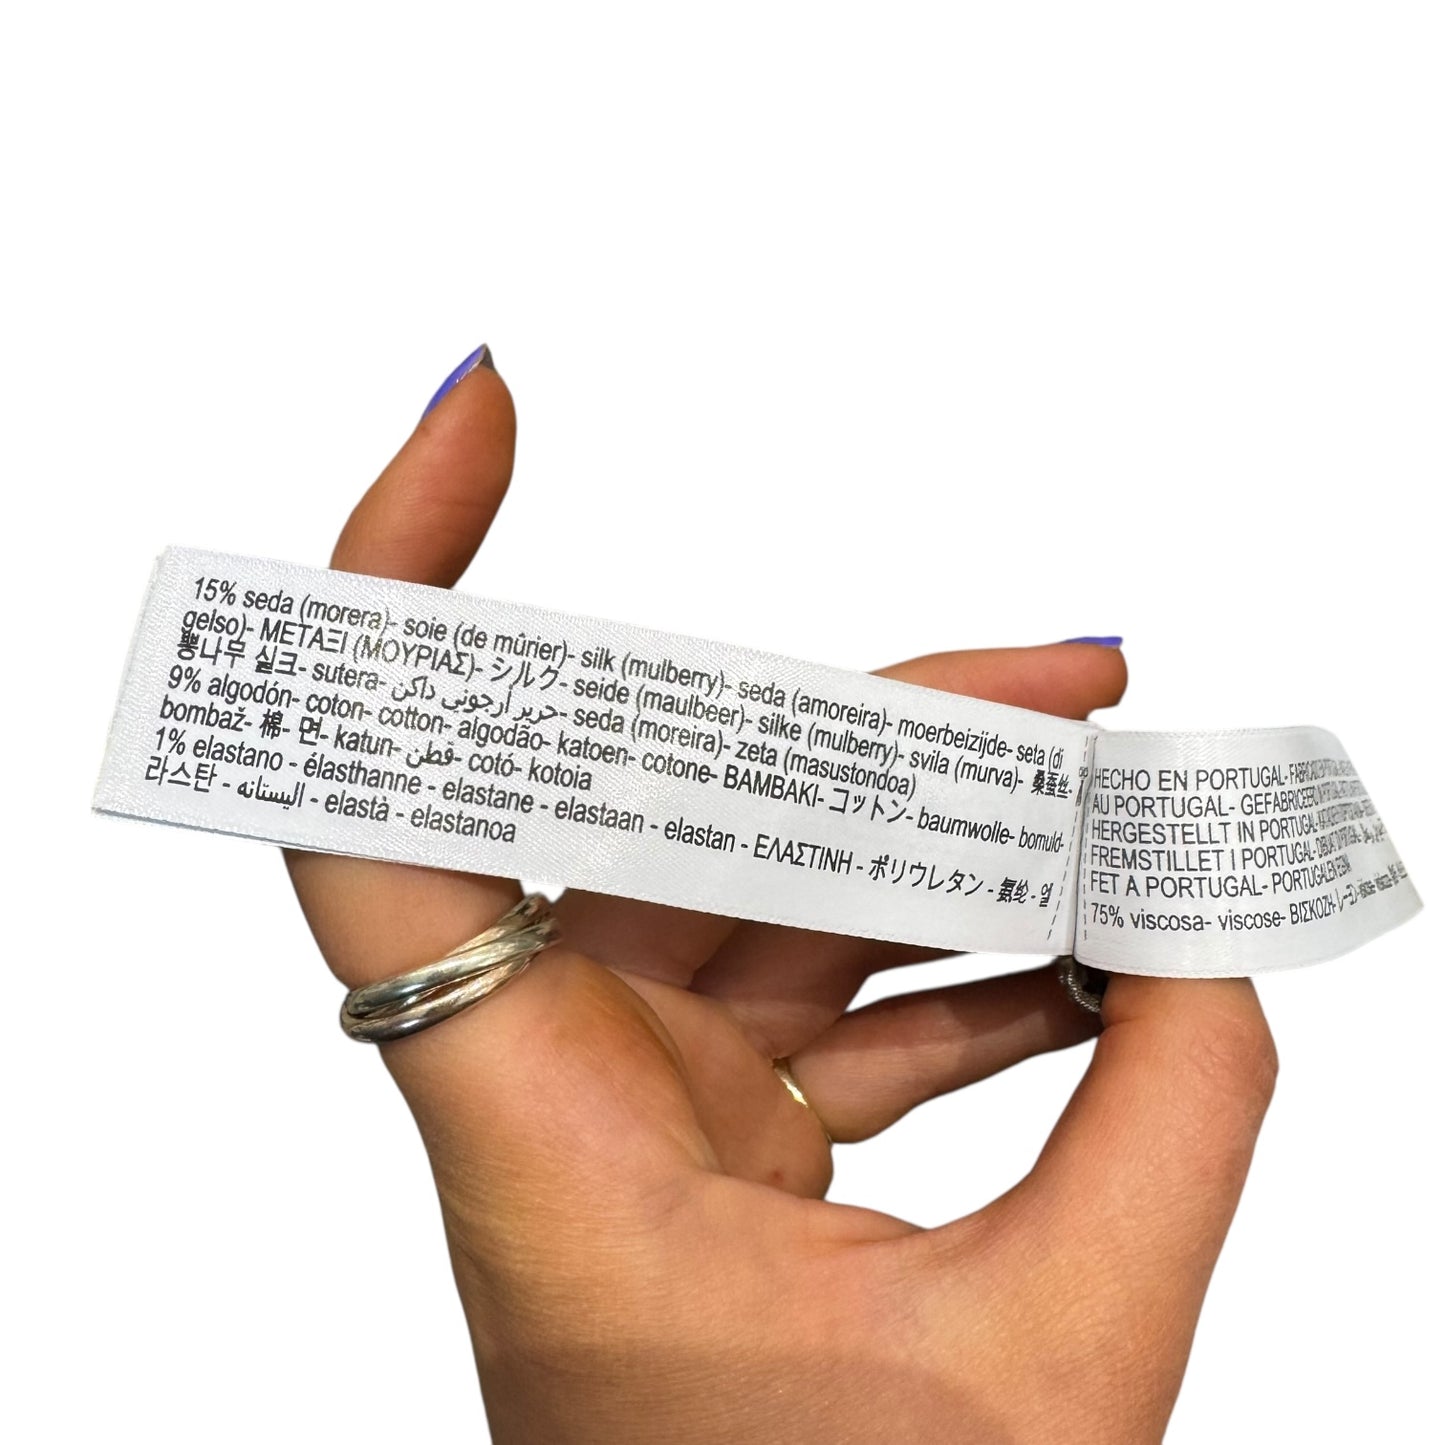 15% seda (morera)- soie (de mûrier)- silk (mulberry)- seda (amoreira)- moerbeizijde- seta (di
gelso)- ΜΕΤΑΞΙ (ΜΟΥΡΙΑΣ)- シルク- seide (maulbeer)- silke (mulberry)- svila (murva)- 桑蚕丝-
뽕나무 실크- sutera- حرير أرجوني داكن- seda (moreira)- zeta (masustondoa)
9% algodón- coton- cotton- algodão- katoen- cotone- BAMBAKI- コットン- baumwolle- bomuld-
bombaž- 棉- 면- katun- قطن- cotó- kotoia
1% elastano - élasthanne - elastane - elastaan - elastan - ΕΛΑΣΤΙΝΗ - ポリウレタン - 氨纶 - 엘
라스탄 - اليستانه - elastà - elastanoa
HECHO EN PORTUGAL-
AU PORTUGAL- GEFABRICEERD
HERGESTELLT IN PORTUGAL-
FREMSTILLET I PORTUGAL-
FET A PORTUGAL- PORTUGALEN EGINA
75% viscosa- viscose- ΒΙΣΚΟΖΗ- レーヨン-